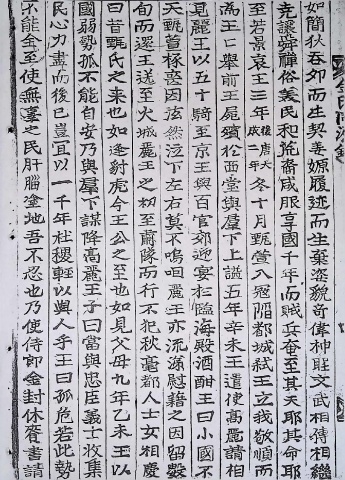 金氏
如簡狄呑夘而生契姜嫄履迹而生棄姿貌奇偉神聖文武相傳相繼
克讓舜禪俗美民和裔咸服享國千年而賊兵奄至其天耶其命耶
至若景哀王三年後唐天成二年冬十月甄萱入冦陷都城弑王立我敬順而
焉王擧前王屍殯於西堂與羣下上諡五年辛未王遣使高麗請相
見麗王以五十騎至京王與百官郊迎宴於臨海殿酒酣王曰小國不
天甄萱椓䘮因泫然泣下左右莫不嗚咽麗王亦流涕慰籍之因留數
旬而還王送至火城麗王之初至肅隊而行不犯秋毫都人士女相慶
曰昔甄氏之來也如逢豺虎今王公之至也如見父母九年乙未王以
國弱勢孤不能自安乃與羣下謀降高麗王子曰當與忠臣義士收集
民心力盡而後已豈宜以一千年社稷輕以與人乎王曰孤危若此勢
不能全至使無辜之民肝腦塗地吾不忍也乃使侍郎金封休賚書請